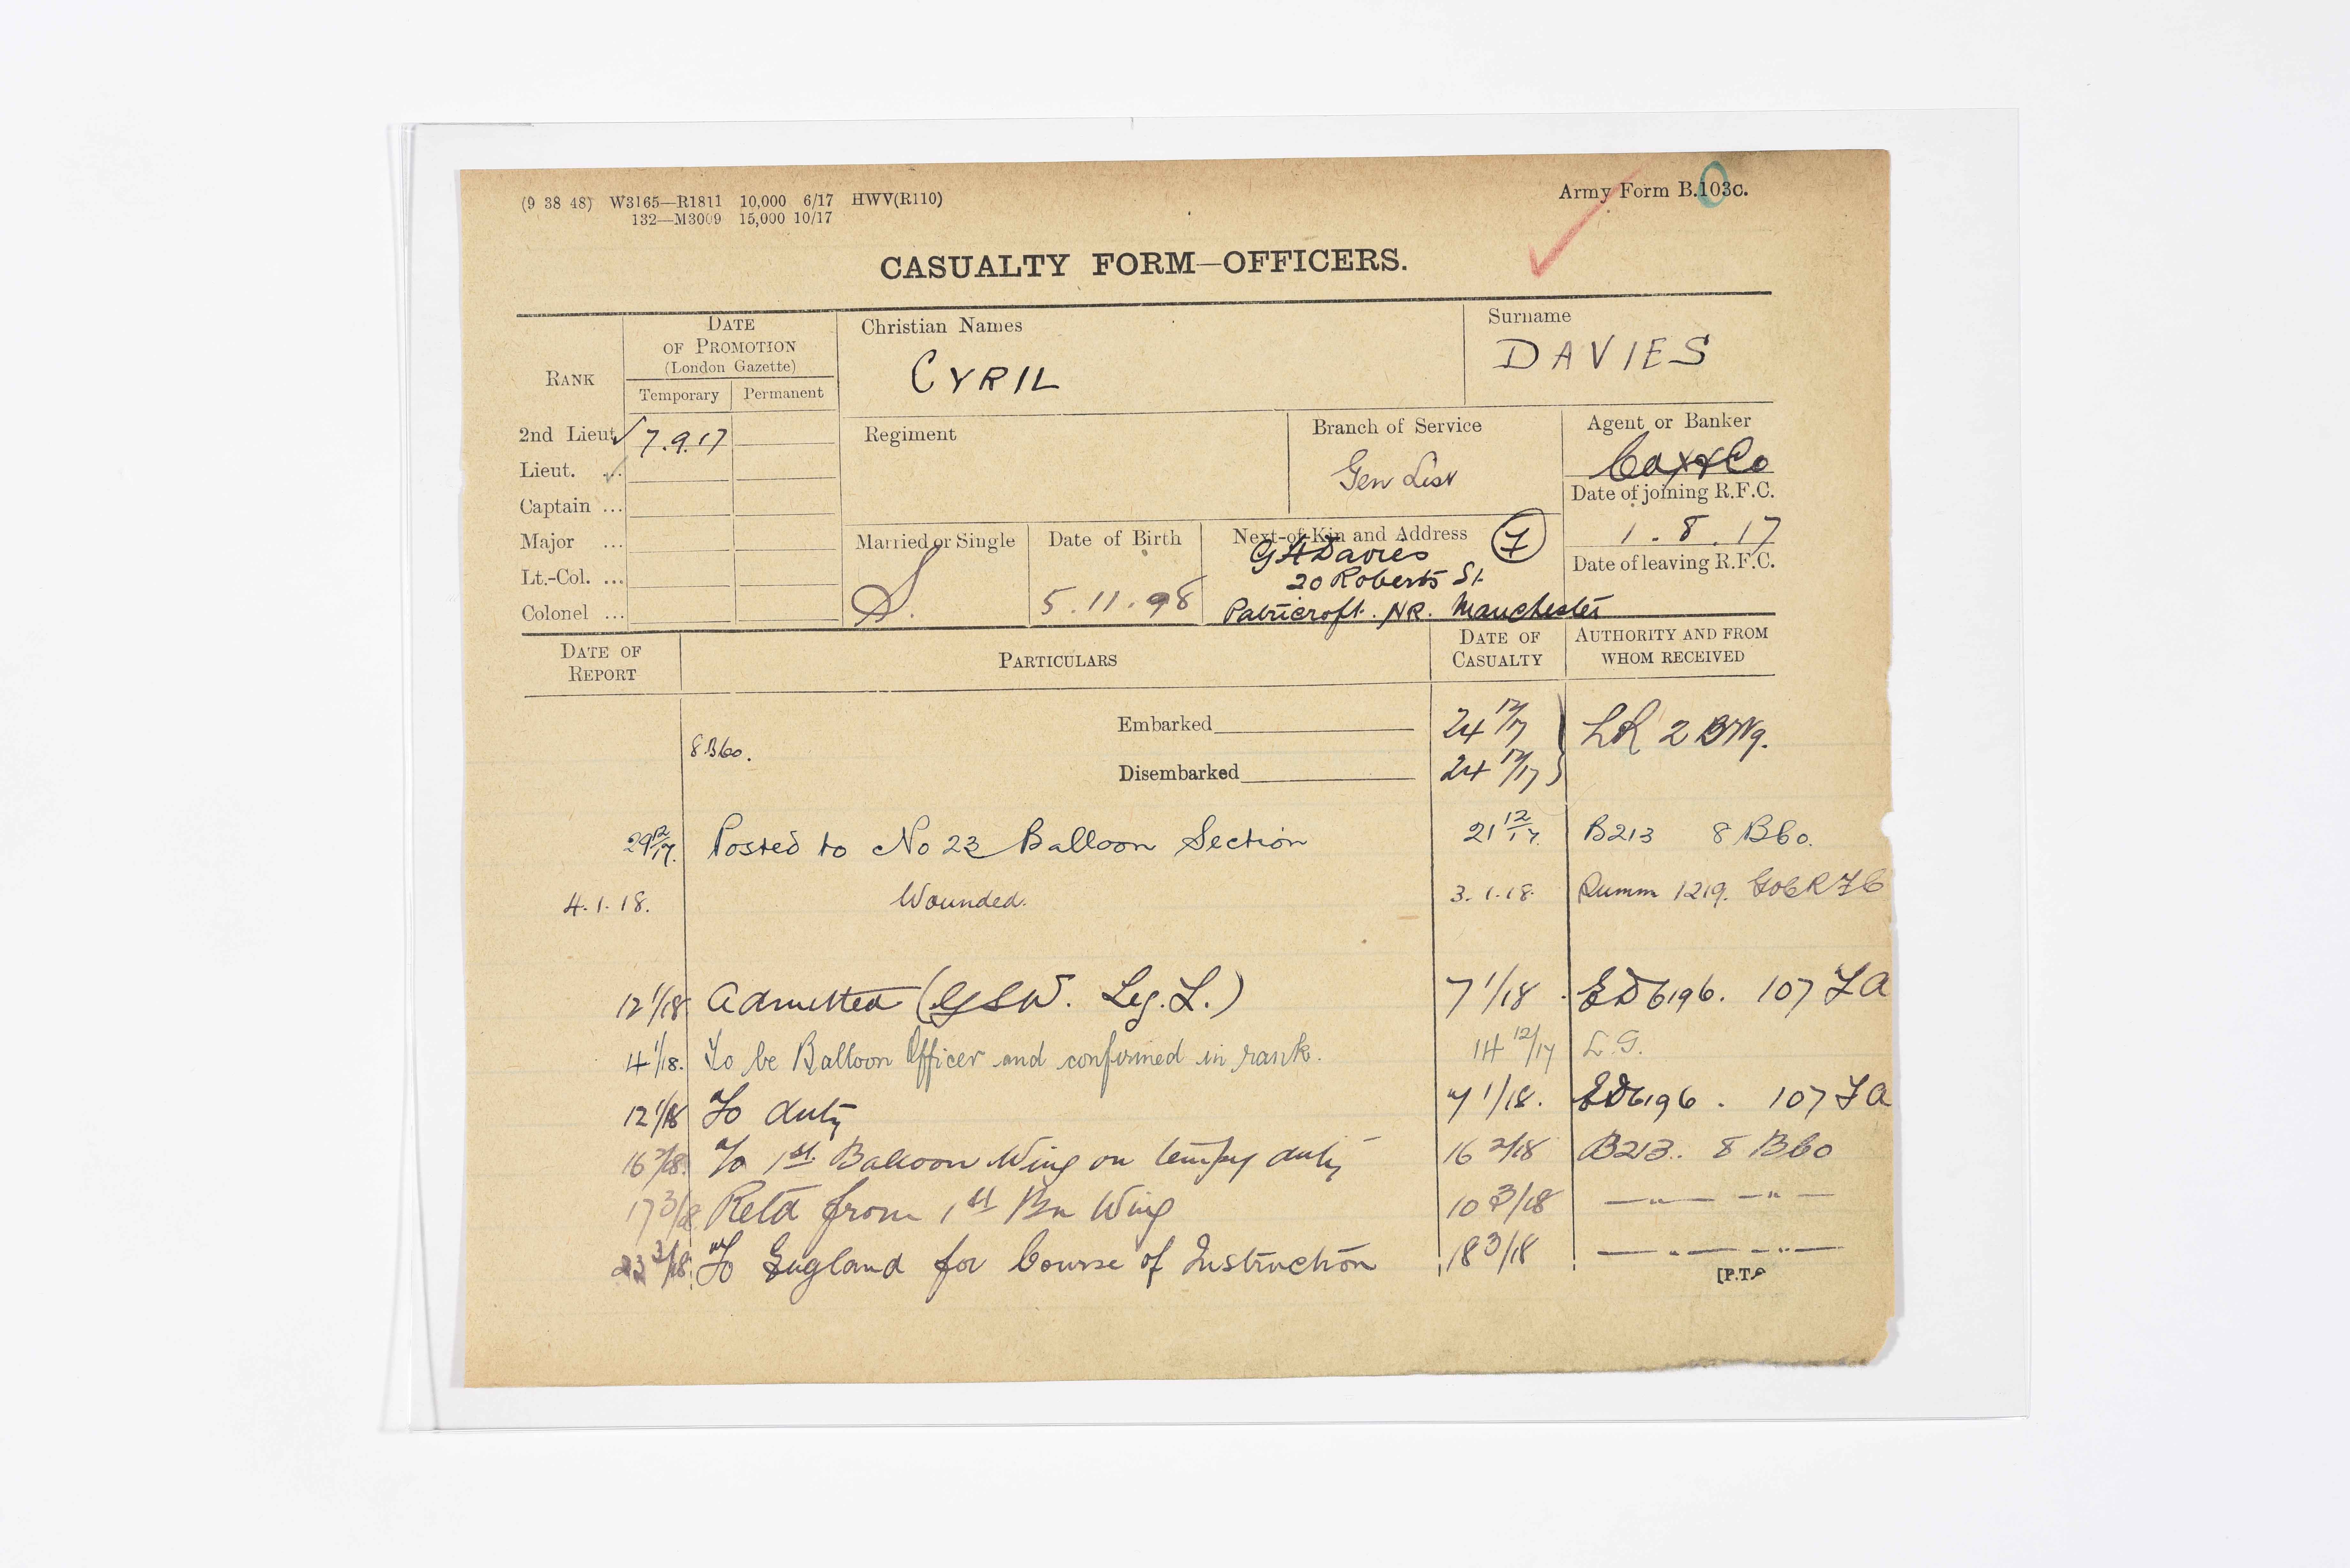 (9 38 48) W3165—R1811 10,000 6/17 HWV(R110)
132—M3009 15,000 10/17
Army Form B.103c.
CASUALTY FORM—OFFICERS.
RANK
DATE OF PROMOTION (London Gazette)
Temporary Permanent
Christian Names
CYRIL
Surname
DAVIES
2nd Lieut. 7.9.17
Lieut. ...
Captain ...
Major ...
Lt.-Col. ...
Colonel ...
Regiment
Branch of Service
Gen List
Agent or Banker
Cox & Co
Date of joining R.F.C.
1.8.17
Date of leaving R.F.C.
Married or Single
S.
Date of Birth
5.11.98
Next-of-Kin and Address
G H Davies
20 Roberts St.
Patricroft. NR. Manchester
DATE OF REPORT PARTICULARS DATE OF CASUALTY AUTHORITY AND FROM WHOM RECEIVED
Embarked 24 12/17
8 BCo. LR 2 BWg.
Disembarked 24 12/17
29 12/17. Posted to No 23 Balloon Section 21 12/17. B213 8 BCo.
4.1.18. Wounded. 3.1.18. 1219. GOC RFC
12 1/18 Admitted (GSW. Leg. L.) 7 1/18 ED6196. 107 FA
4 1/18. To be Balloon Officer and confirmed in rank. 14 12/17 L.G.
12 1/18 To duty 7 1/18. ED6196. 107 FA
16 2/18. To 1st. Balloon Wing on tempy duty 16 2/18 B213. 8 BCo
17 3/18 Retd from 1st Bn Wing 10 3/18 —"— —"—
23 3/18. To England for Course of Instruction 18 3/18 —"— —"—
[P.T.O